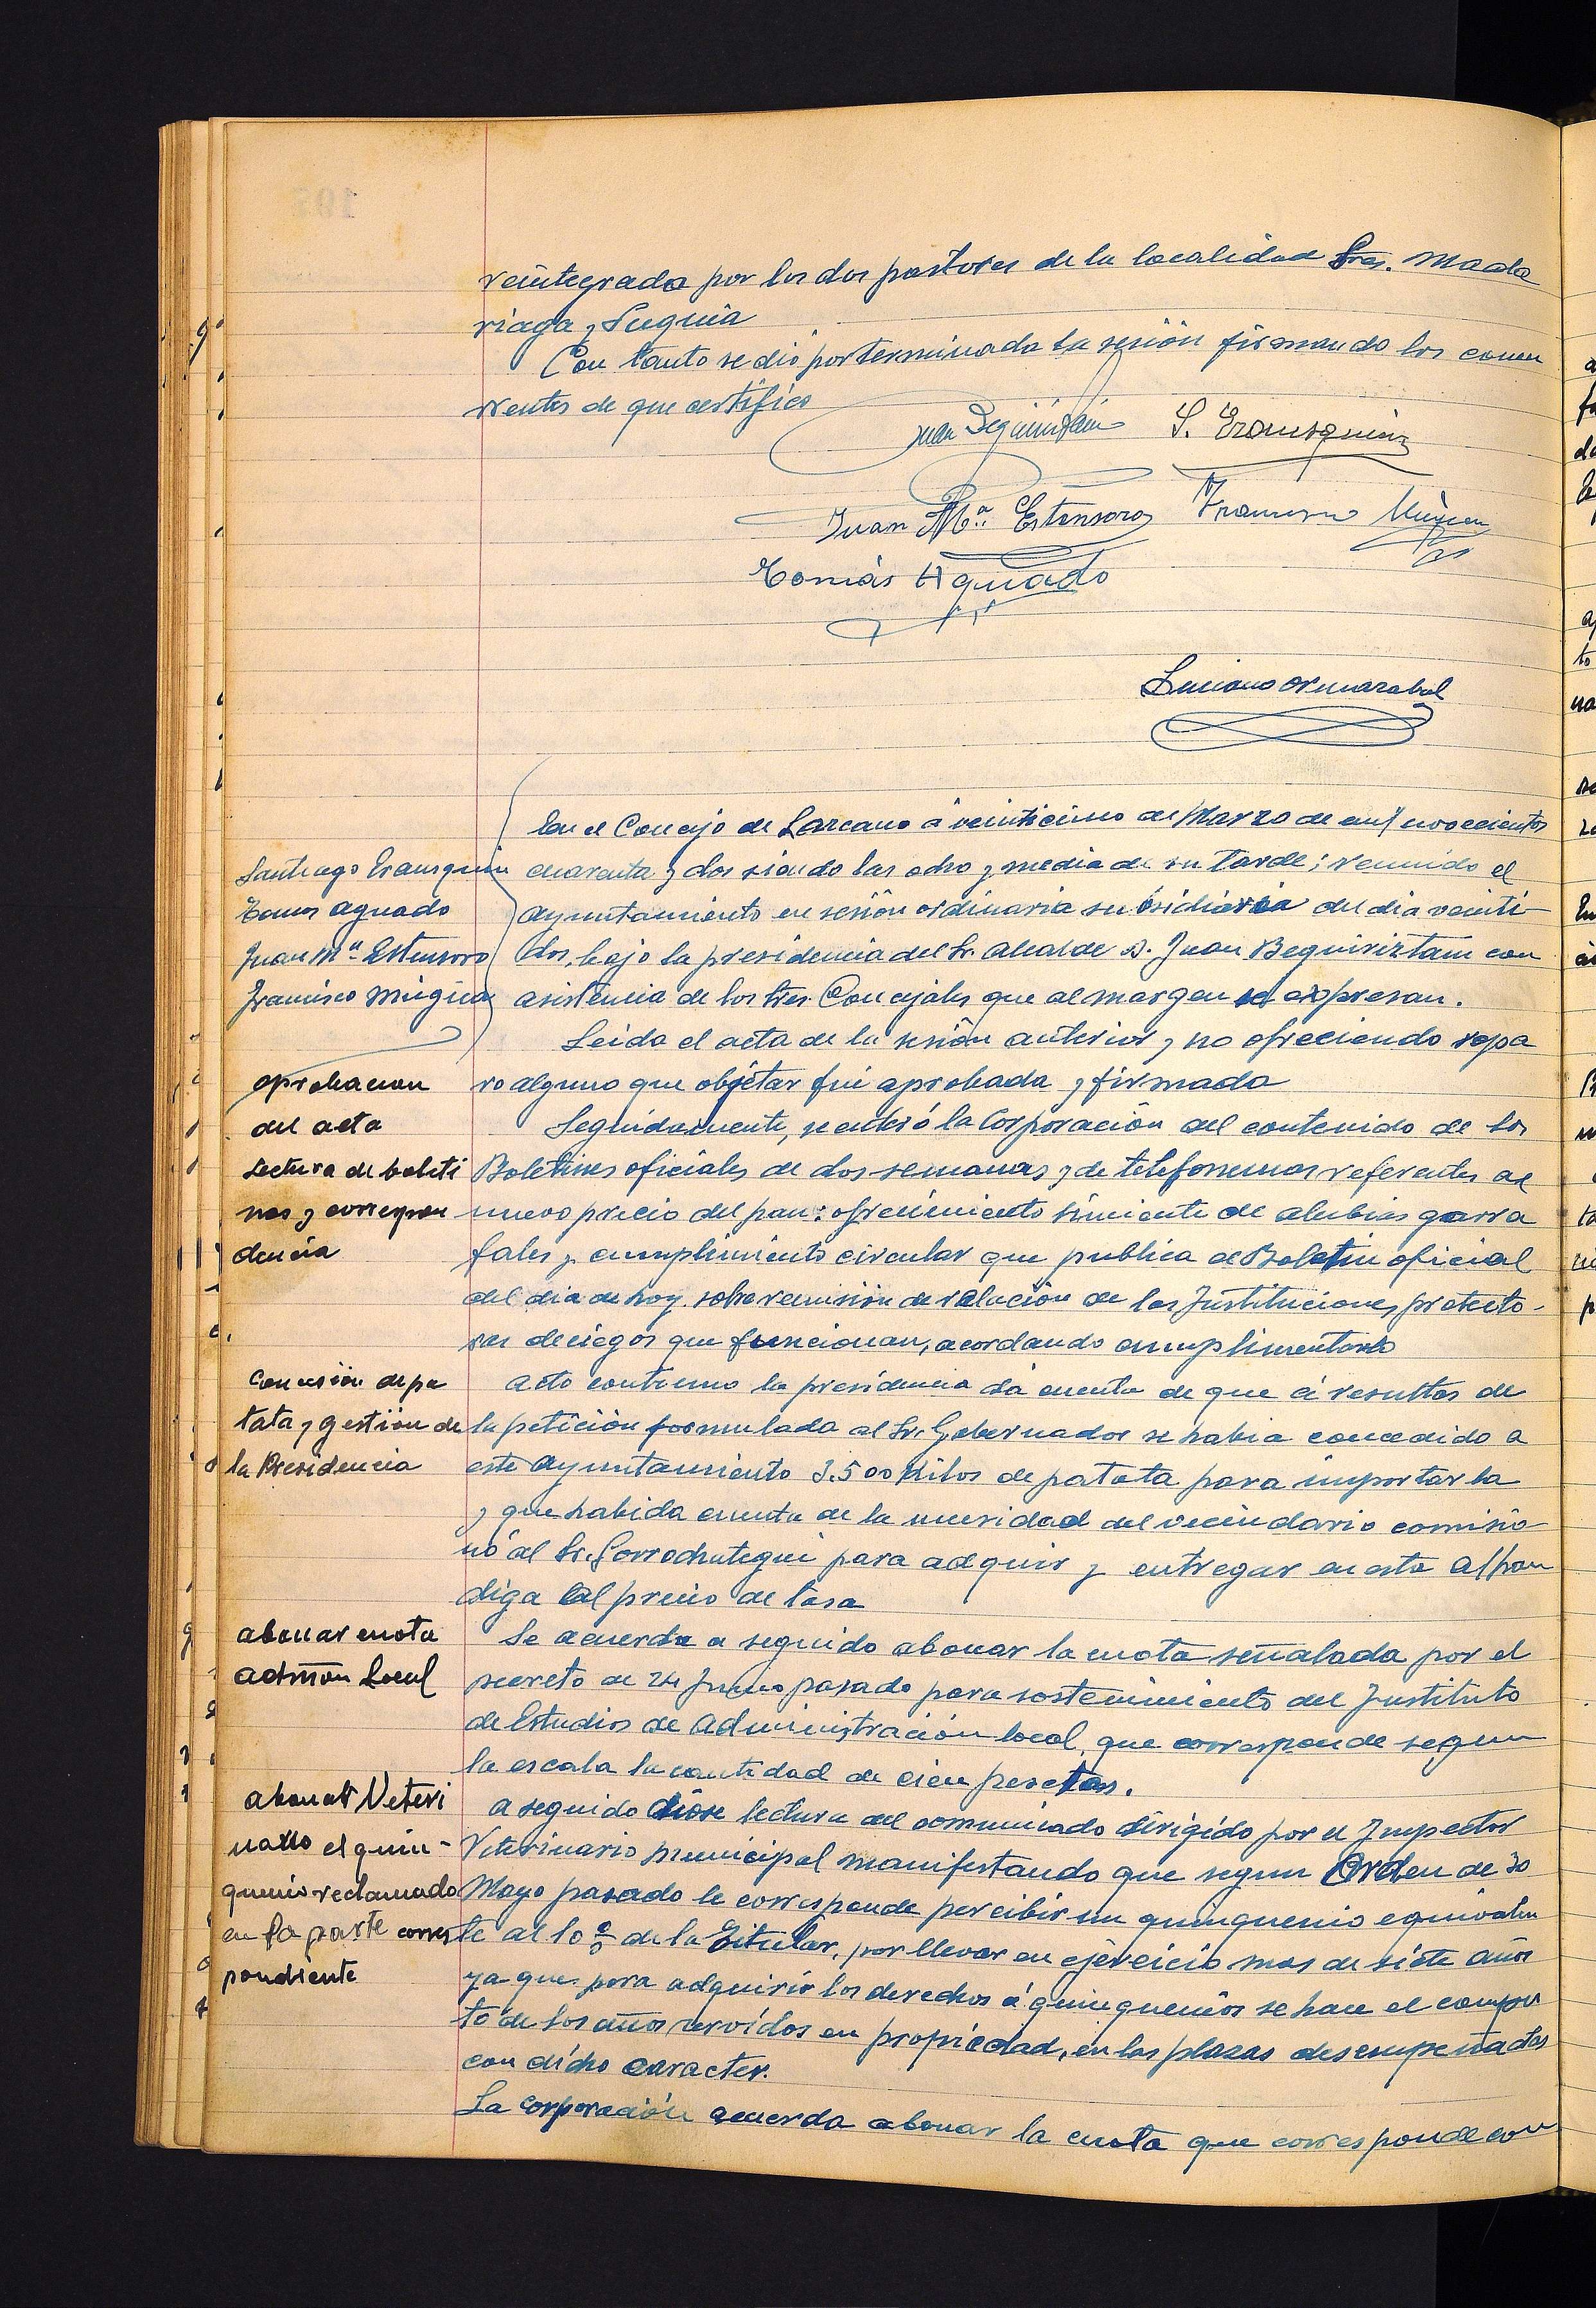 reintegrada por los dos pastores de la localidad Sres. Mada
riaga y Suquia
Con tanto se dió por terminada la sesión firmando los concu
rrentes de que certifico
Juan Beguiristain S. Eraunsquin
Juan Mª. Estensoro Francisco Múgica
Tomás Aguado
Luciano Ormazabal
En el Concejo de Lazcano á veinticinco de Marzo de mil novecientos
cuarenta y dos siendo las ocho y media de su tarde; reunido el
Ayuntamiento en sesión ordinaria subsidiaria del dia veinti-
dos, bajo la presidencia del Sr. Alcalde D. Juan Beguiriztain con
asistencia de los tres Concejales que al margen se expresan.
Santiago Eraunsquin
Tomas Aguado
Juan Mª Estensoro
Francisco Múgica
aprobacion
del acta
Leida el acta de la sesión anterior y no ofreciendo repa
ro alguno que objetar fué aprobada y firmada
Lectura de boleti
nes y correspon
dencia
Seguidamente, se enteró la Corporación del contenido de los
Boletines oficiales de dos semanas y de telefonemas referentes al
nuevo precio del pan: ofrecimiento simiente de alubias garra
fales y cumplimiento circular que publica el Boletin oficial
del dia de hoy sobre remisión de relación de las Instituciones protecto-
ras de ciegos que funcionan, acordando cumplimentarlo
Concesión de pa
tata y gestión de
la Presidencia
Acto contínuo la presidencia dá cuenta de que á resultas de
la petición formulada al Sr. Gobernador se habia concedido a
este Ayuntamiento 3.500 Kilos de patata para importarla
y que habida cuenta de la necesidad del vecindario comisio
nó al Sr. Gorrochategui para adquirir y entregar en esta Alhon
diga al precio de tasa
abonar cuota
admon Local
Se acuerda a seguido abonar la cuota señalada por el
decreto de 24 Junio pasado para sostenimiento del Instituto
de Estudios de Administración local, que corresponde segun
la escala la cantidad de cien pesetas.
abonar Veteri
nario el quin-
quenio reclamado
en la parte corres
pondiente
A seguido dióse lectura del comunicado dirigido por el Inspector
Veterinario municipal manifestando que segun Orden de 30
Mayo pasado le corresponde percibir un quinquenio equivalen
te al 10 % de la Titular, por llevar en ejercicio mas de siete años
ya que para adquirir los derechos á quinquenios se hace el compu
to de los años servidos en propiedad, en las plazas desempeñadas
con dicho caracter.
La corporación acuerda abonar la cuota que corresponde con